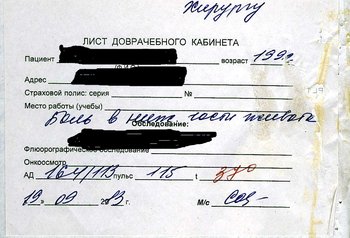 Хирургу
ЛИСТ ДОВРАЧЕБНОГО КАБИНЕТА
Пациент возраст 199
Адрес
Страховой полис: серия №
Место работы (учебы)
Боль в ниж части живота
Обследование:
Флюорографическое обследование
Онкоосмотр
АД 164/113 пульс 115 t 37°
19. 09 2013г. М/с